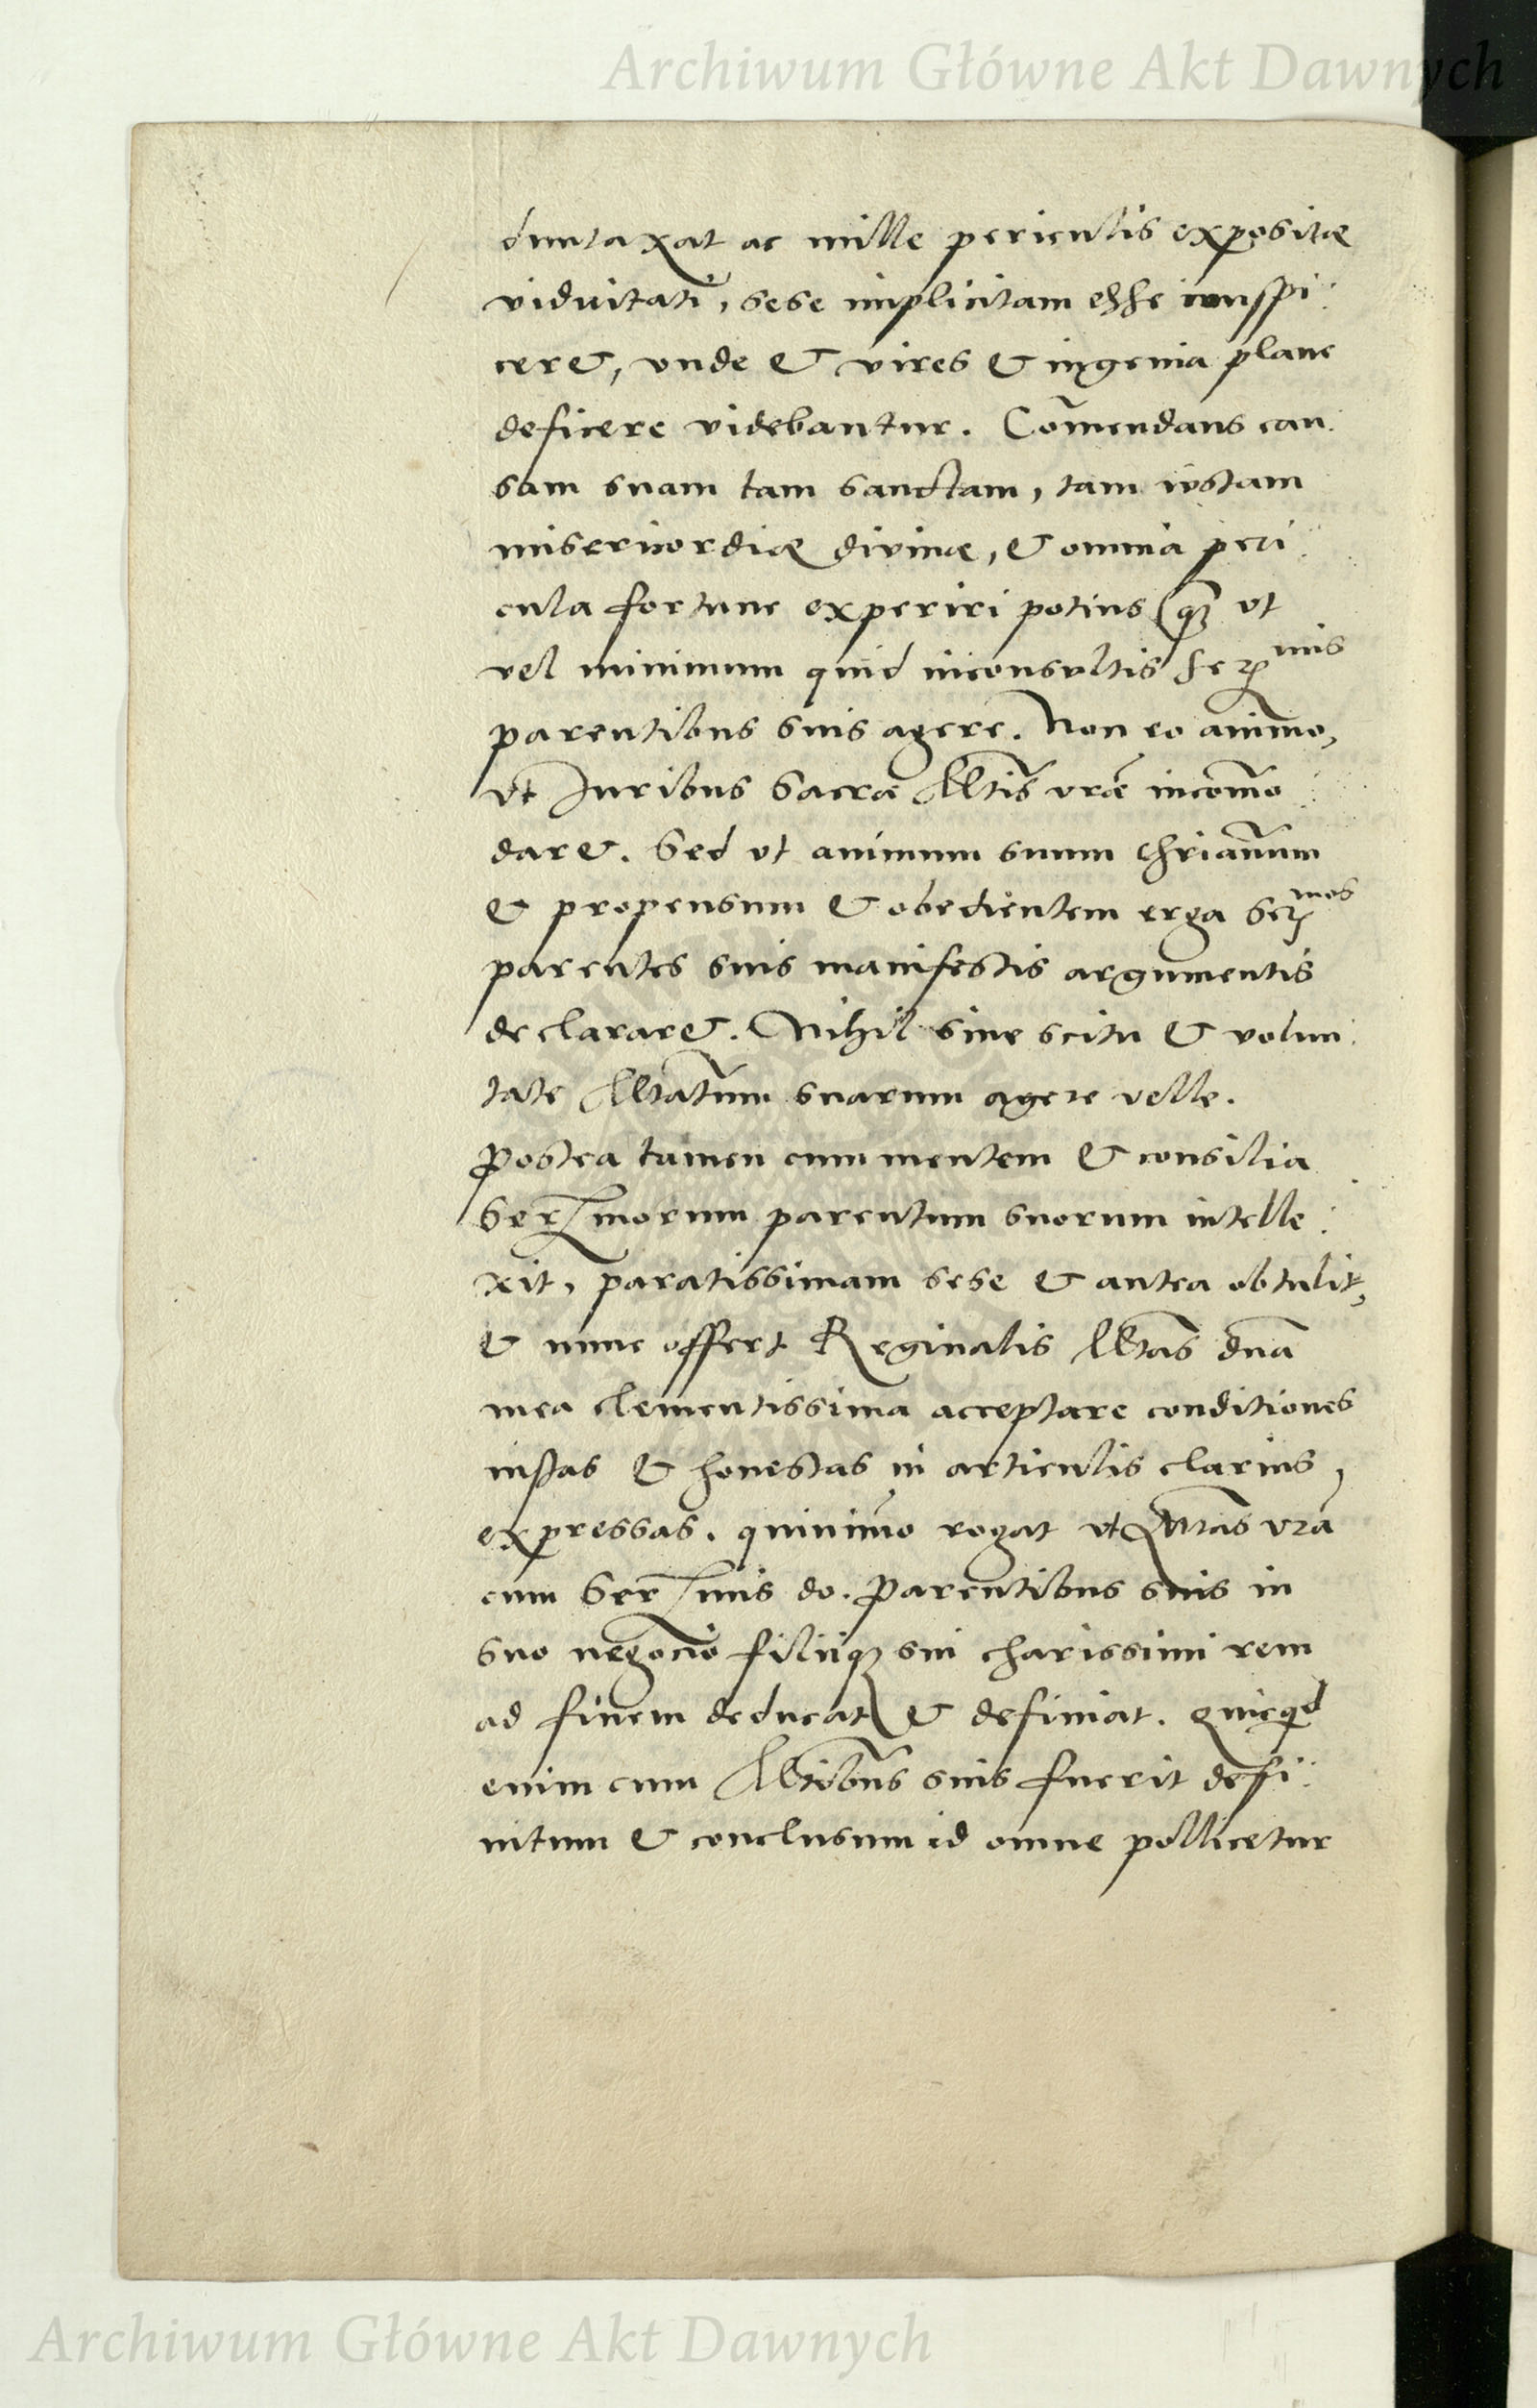 Archiwum Główne Akt Dawnych
duntaxat ac mille periculis expositæ
viduitati, sese implicitam esse conspi:
ceret, vnde & vires & ingenia plane
deficere videbantur. Com̄endans cau:
sam suam tam sanctam, tam iustam
misericordiæ divinæ, & omnia peri:
cula fortune experiri potius q̃ȝ vt
vel minimum quid inconsultis Serᵐⁱˢ
parentibus suis agere. Non eo animo,
vt Juribus Sacræ Mtis vræ incom̄o:
daret. Sed vt animum suum chrianum
& propensum & obedientem erga Serᵐᵒˢ
parentes suis manifestis argumentis
declararet. Nihil sine scitu & volun:
tate Mtatum suarum agere velle.
Postea tamen cum mentem & consilia
Ser̄morum parentum suorum intelle:
xit, paratissimam sese & antea obtulit,
& nunc offert Reginalis Mtas dnā
mea clementissima acceptare conditiones
iustas & honestas in articulis clarius,
expressas. quinimo rogat vt Mtas vrā
cum Ser̄mis do. Parentibus suis in
suo negocio filiiqȝ sui charissimi rem
ad finem deducat & definiat. quicqd
enim cum Mtibus suis fuerit defi:
nitum & conclusum id omne pollicetur
Archiwum Główne Akt Dawnych